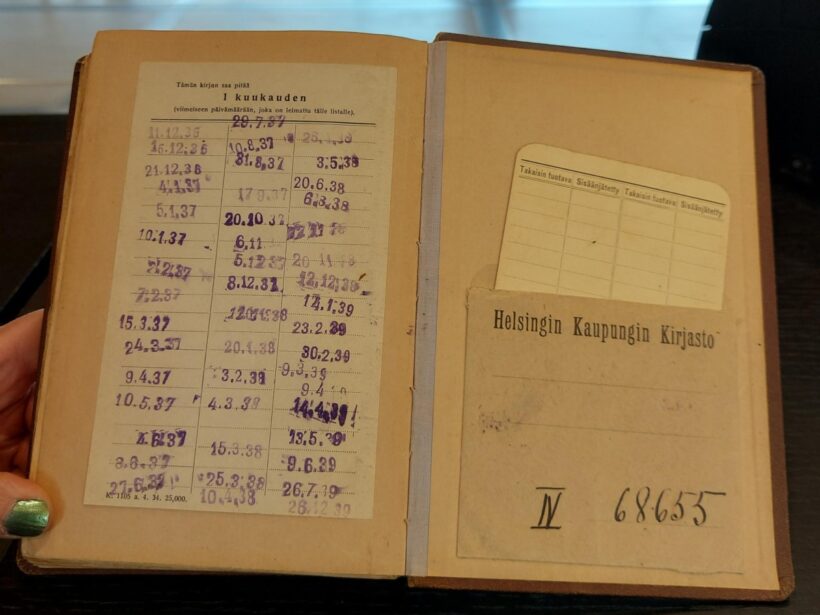 Tämän kirjan saa pitää
1 kuukauden
(viimeiseen päivämäärään, joka on leimattu tälle listalle).
11.12.36
15.12.36
21.12.36
4.1.37
5.1.37
10.1.37
7.2.37
15.3.37
24.3.37
9.4.37
10.5.37
4.6.37
8.6.37
27.6.37
29.7.37
10.8.37
31.8.37
17.9.37
20.10.37
6.11
5.12.37
8.12.37
20.1.38
3.2.38
4.3.38
15.3.38
25.3.38
10.4.38
3.5.38
20.6.38
6.8.38
12.12.38
14.1.39
23.2.39
30.2.39
9.3.39
9.4
14.4.39
13.5.39
9.6.39
26.7.39
28.12.39
Kk 1105 a. 4. 34. 25,000.
Takaisin tuotava Sisäänjätetty Takaisin tuotava Sisäänjätetty
Helsingin Kaupungin Kirjasto
IV 68655